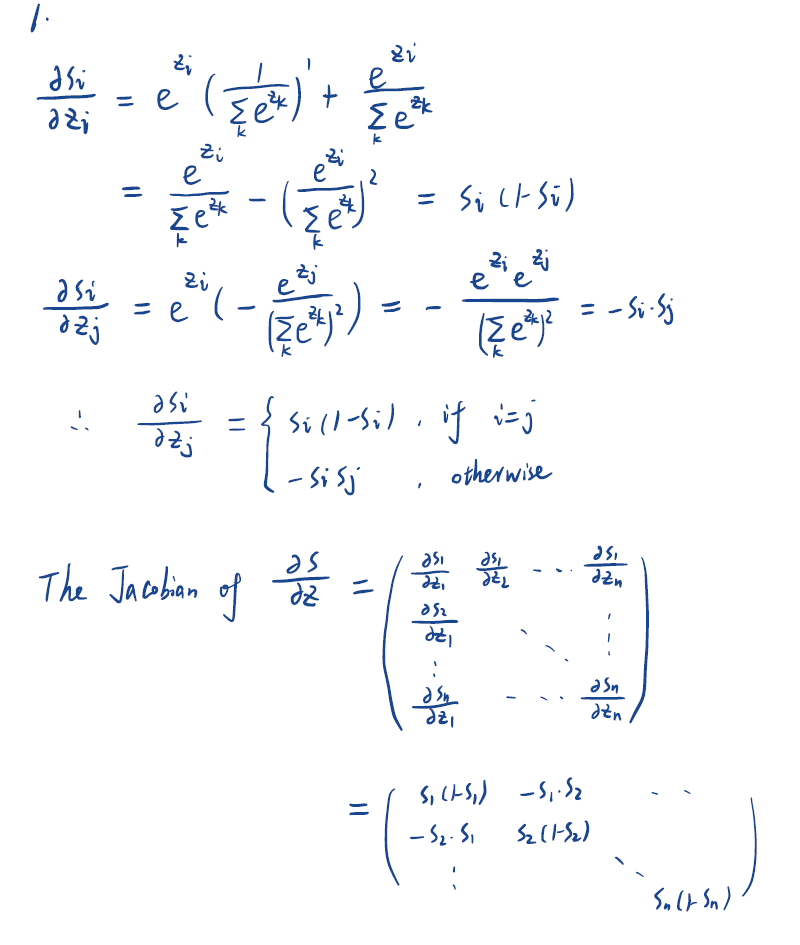 1.
∂s_i/∂z_i = e^{z_i} (1/∑_k e^{z_k})' + e^{z_i}/∑_k e^{z_k}
= e^{z_i}/∑_k e^{z_k} − (e^{z_i}/∑_k e^{z_k})^2 = s_i (1−s_i)
∂s_i/∂z_j = e^{z_i} (− e^{z_j}/(∑_k e^{z_k})^2) = − e^{z_i} e^{z_j}/(∑_k e^{z_k})^2 = −s_i·s_j
∴ ∂s_i/∂z_j = { s_i(1−s_i) , if i=j
−s_i s_j , otherwise
The Jacobian of ∂S/∂Z = ( ∂s_1/∂z_1 ∂s_1/∂z_2 ⋯ ∂s_1/∂z_n
∂s_2/∂z_1 ⋱ ⋮
⋮
∂s_n/∂z_1 ⋯ ∂s_n/∂z_n )
= ( s_1(1−s_1) −s_1·s_2 ⋯
−s_2·s_1 s_2(1−s_2)
⋮ ⋱
s_n(1−s_n) )